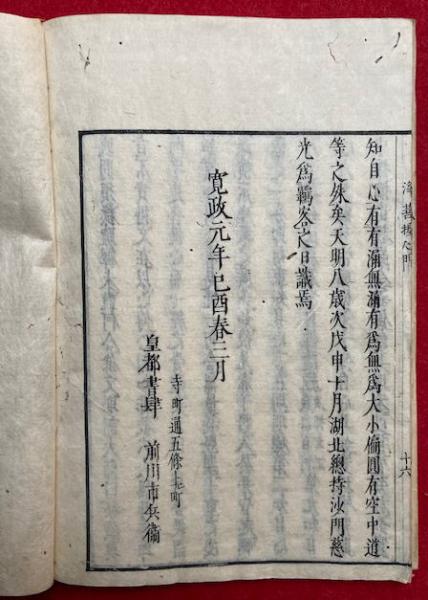 淨菩提心門
十六
知自心有有漏無漏有爲無爲大小偏圓有空中道
等之殊矣天明八歲次戊申十月湖北總持沙門慈
光爲羈客之日識焉
寬政元年己酉春三月
寺町通五條上町
皇都書肆 前川市兵衞